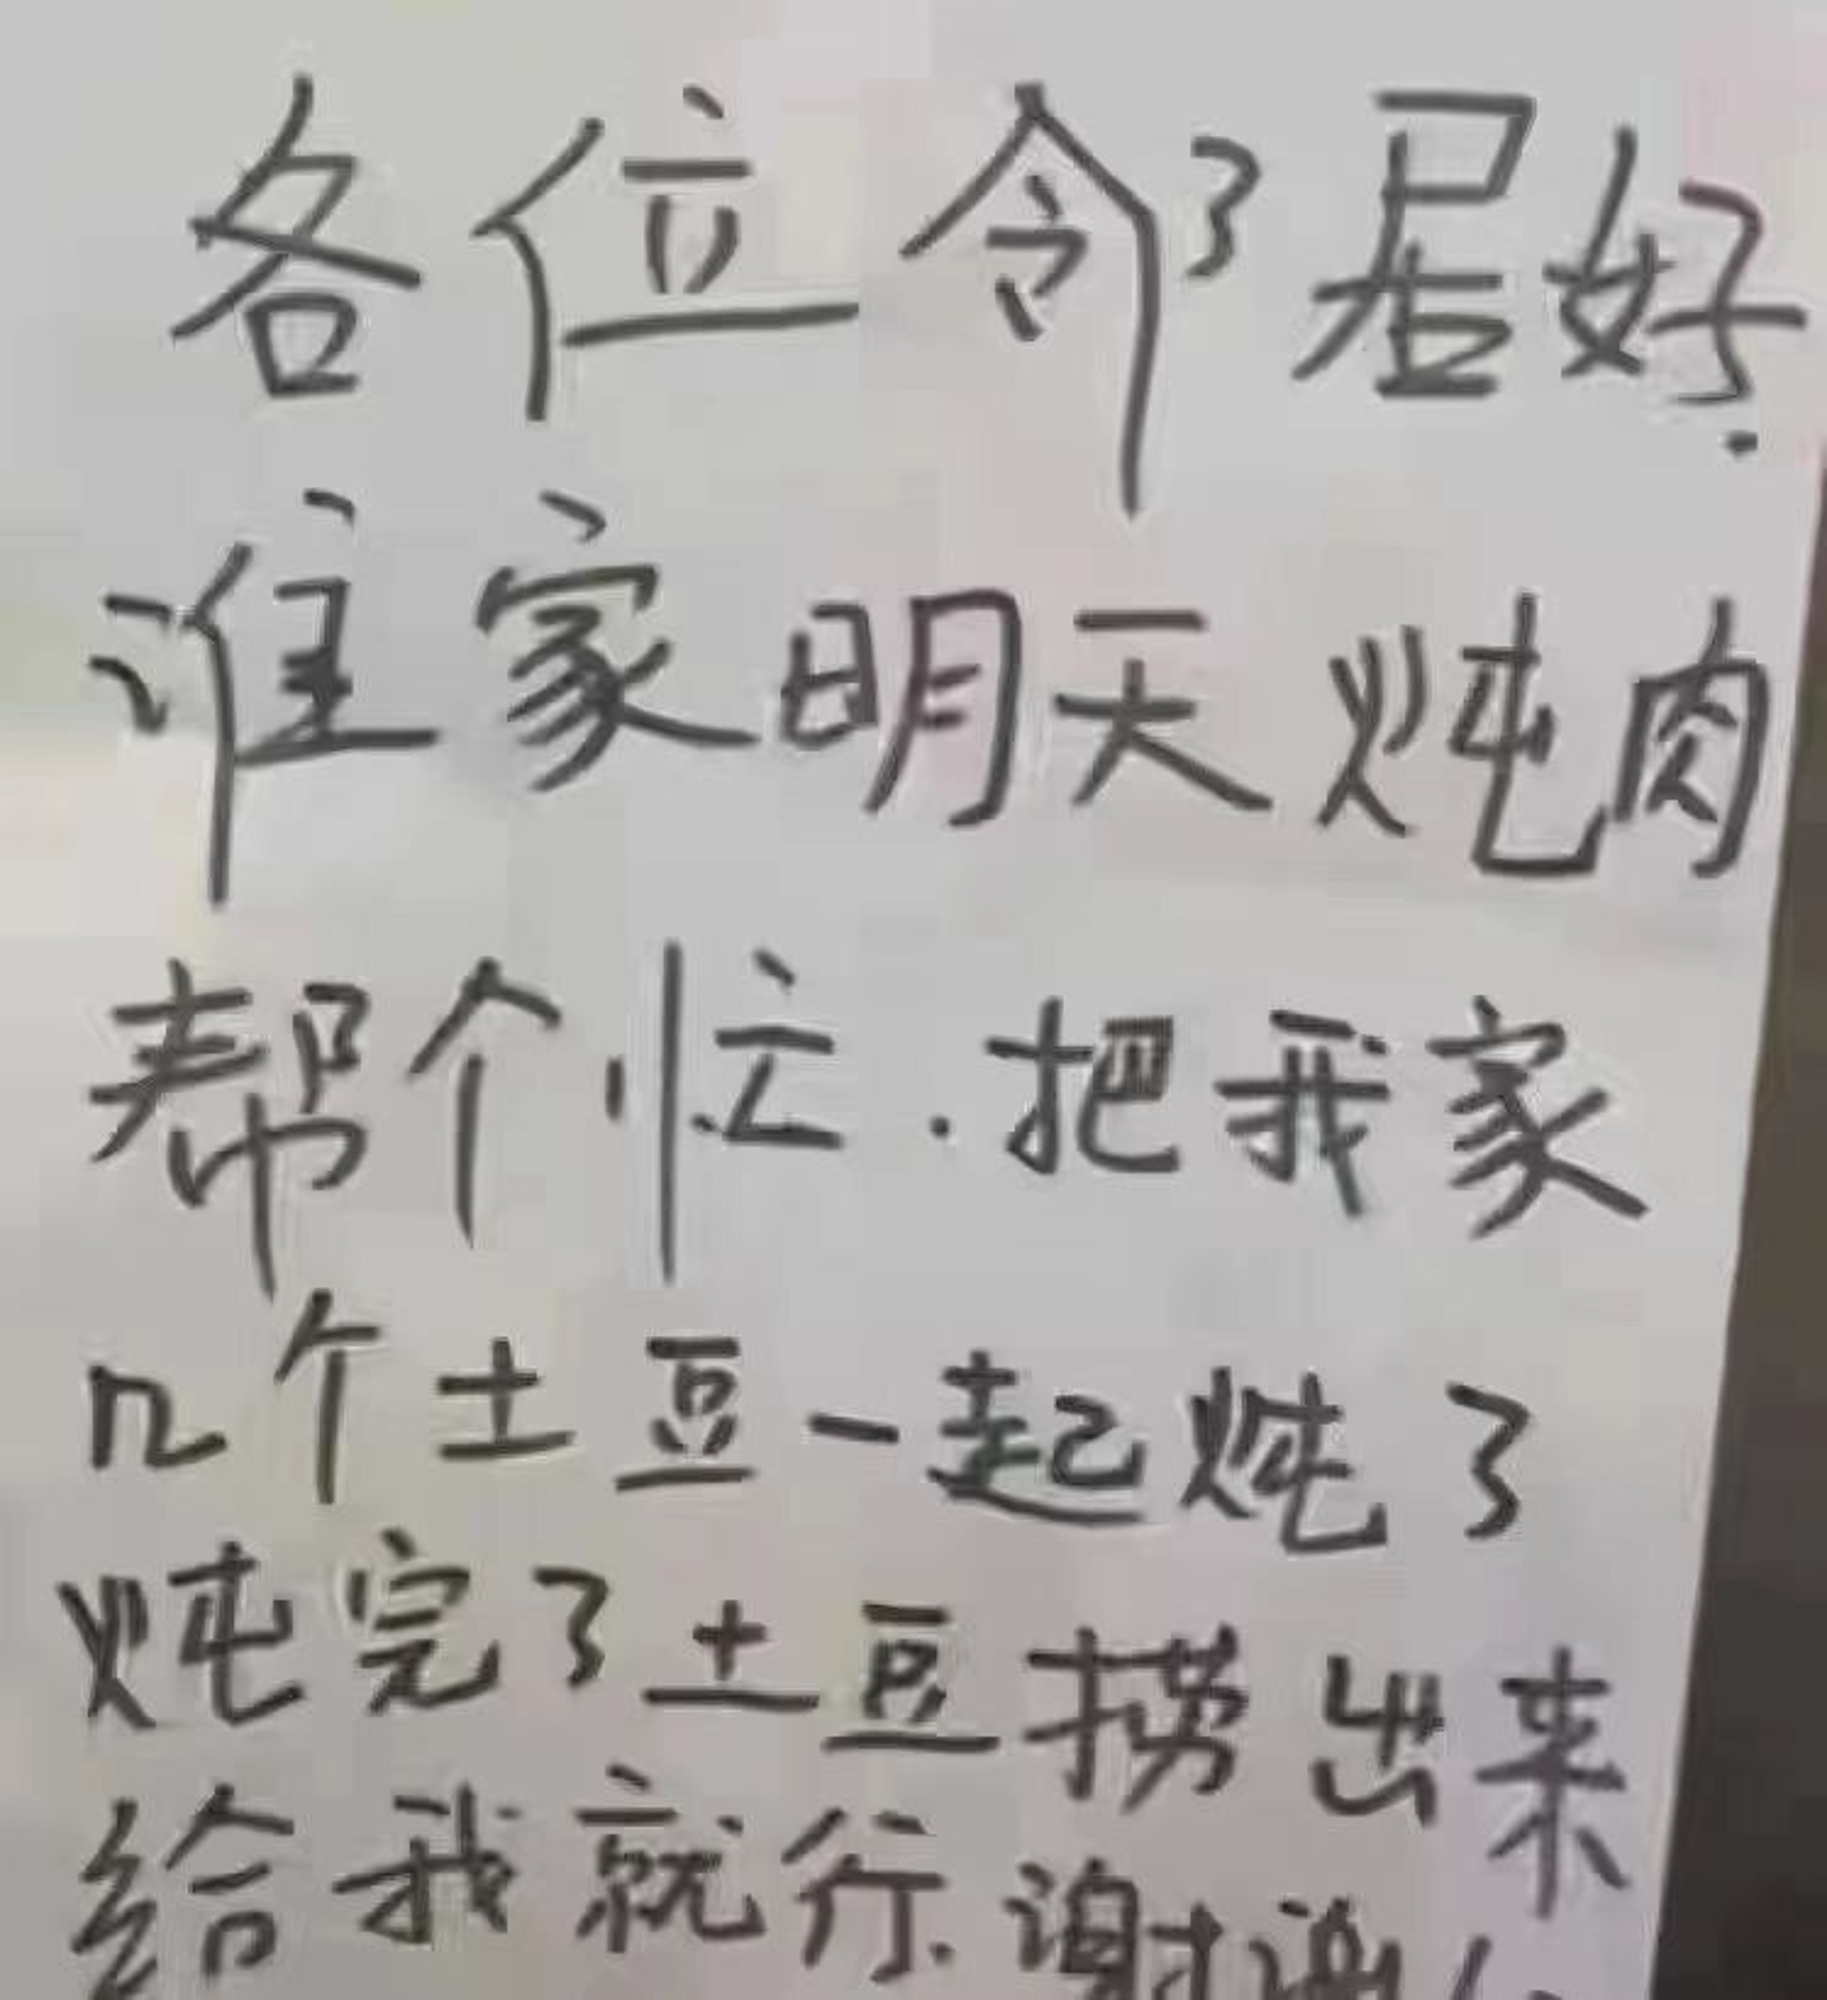 各位邻居好.
谁家明天炖肉
帮个忙.把我家
几个土豆一起炖了
炖完了土豆捞出来
给我就行.谢谢